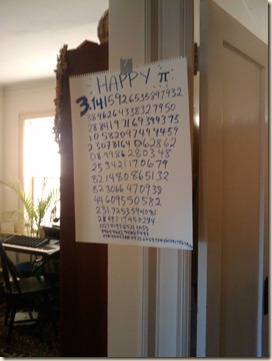 HAPPY π
3.1415926535897932
3846264338327950
2884197169399375
10582097494459
23078164062862
089986280348
253421170679
821480865132
823066470938
44609550582
2317253594081